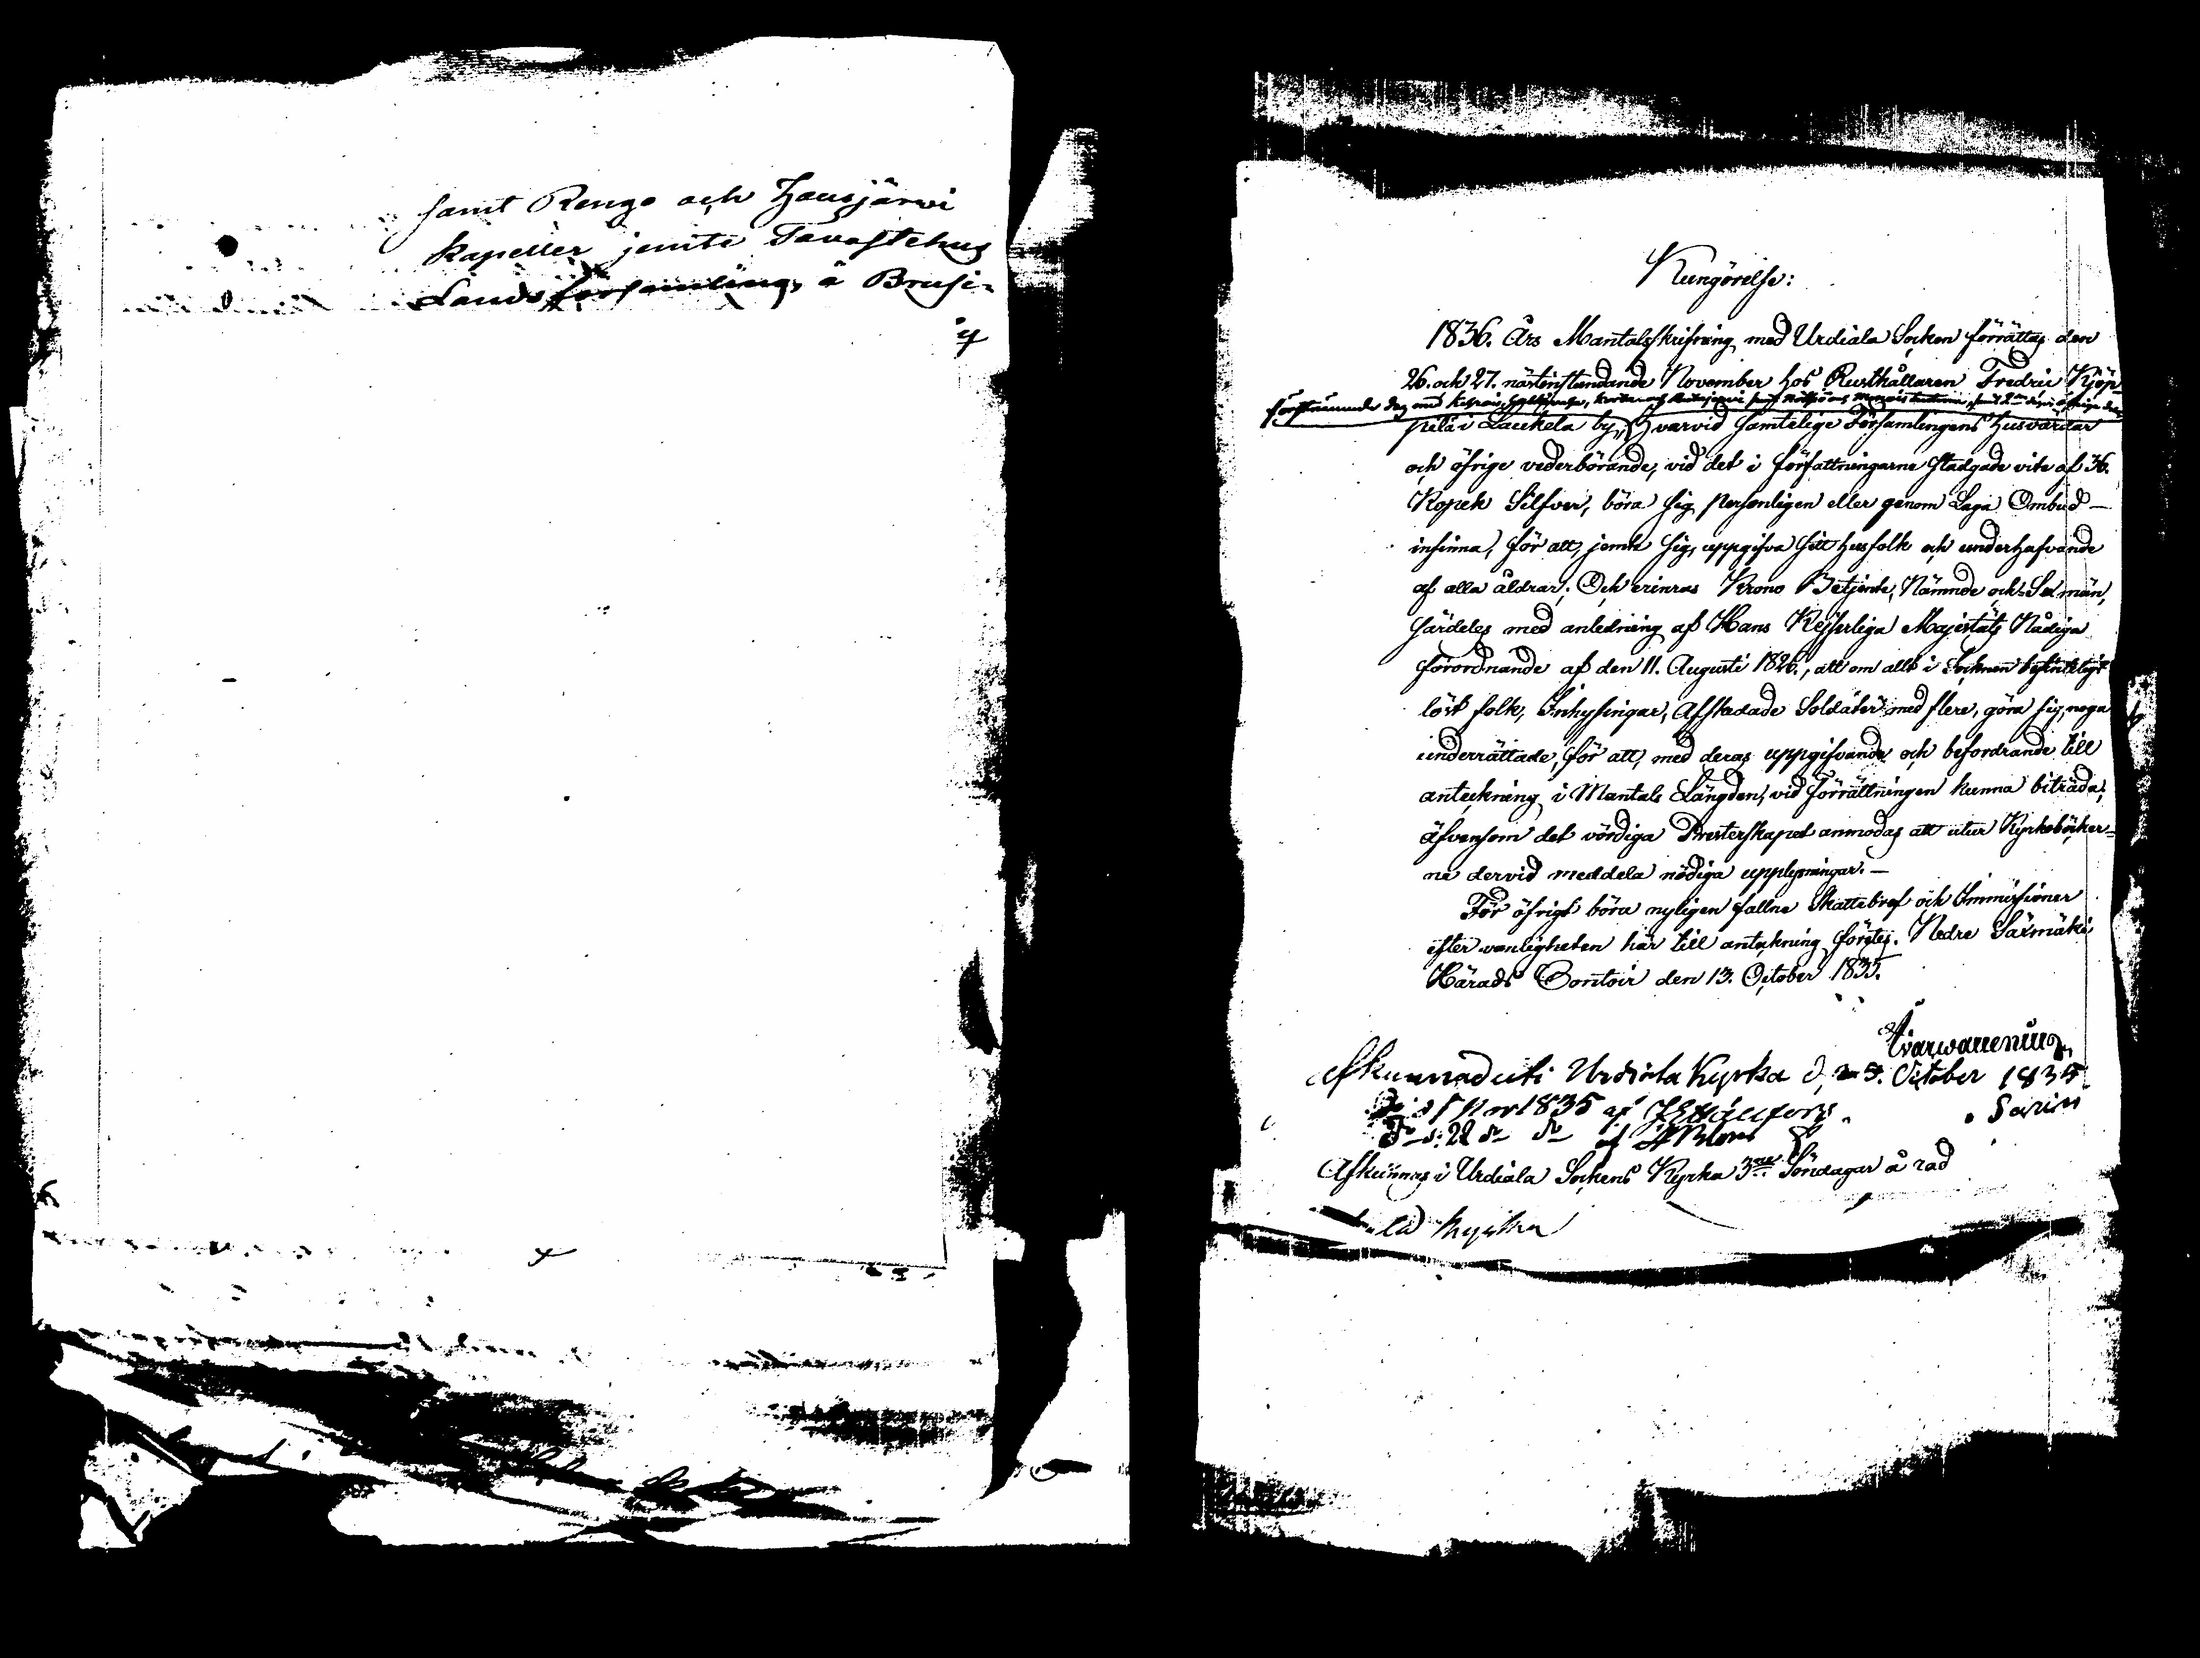 samt Rengo och Hausjärwi
kapeller jemte Tavastehus
Lands församling, å Brusi-
Kungörelse:
1836. Års Mantalsskrifning med Urdiala Socken förrättas den
26. och 27. nästinstundande November hos Rusthållaren Fredric Kjöp-
förstnämnde dag med
pilä i Laukela by, Hvarvid samtelige Församlingens Husvärdar
och öfrige vederbörande, vid det i författningarne stadgade vite af 36.
Kopek Silfver, böra sig personligen eller genom Laga Ombud –
infinna, för att, jemte sig, uppgifva sitt husfolk och underhafvande
af alla åldrar; Och erinras Krono Betjente, Nämnde och Sexmän,
särdeles med anledning af Hans Kejserliga Majestäts Nådiga
förordnande af den 11. Augusti 1826., att om allt i Socknen befinteligt
löst folk, Inhysingar, Afskedade Soldater med flere, göra sig noga
underrättade, för att, med deras uppgifvande och befordrande till
anteckning i Mantals Längden, vid Förrättningen kunna biträda,
äfvensom det vördiga Presterskapet anmodas att utur Kyrkoböcker-
ne dervid meddela nödiga upplysningar. –
För öfrigt böra nyligen fallne Skattebref och Immissioner
efter vanligheten här till anteckning företes. Nedre Säxmäki
Härads Contoir den 13. October 1835.
Afkunnadt i Urdiala Kyrka d. October 1835
1835 af
af
Afkunnas i Urdiala Sockens Kyrka 3ne Söndagar å rad